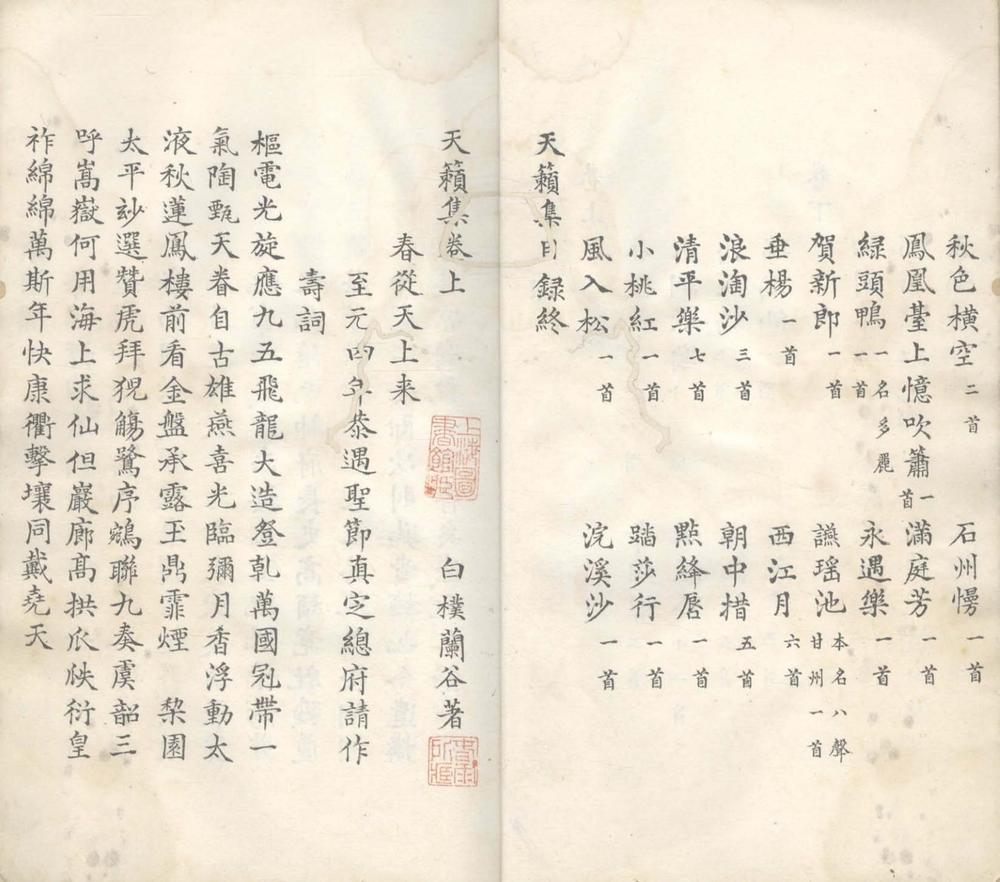 秋色橫空二首 石州慢一首
鳳凰臺上憶吹簫一首 滿庭芳一首
綠頭鴨一名多麗一首 永遇樂一首
賀新郎一首 讌瑤池本名八聲甘州一首
垂楊一首 西江月六首
浪淘沙三首 朝中措五首
清平樂七首 點絳唇一首
小桃紅一首 踏莎行一首
風入松一首 浣溪沙一首
天籟集目録終
天籟集卷上 白樸蘭谷著
春從天上来
至元四年恭遇聖節真定總府請作
壽詞
樞電光旋應九五飛龍大造登乹萬國冠帶一
氣陶甄天眷自古雄燕喜光臨彌月香浮動太
液秋蓮鳳樓前看金盤承露玉鼎霏煙 棃園
太平玅選贊虎拜猊觴鷺序鵷聯九奏虞韶三
呼嵩嶽何用海上求仙但巖廊髙拱瓜瓞衍皇
祚綿綿萬斯年快康衢擊壤同戴堯天
上海圖書館藏